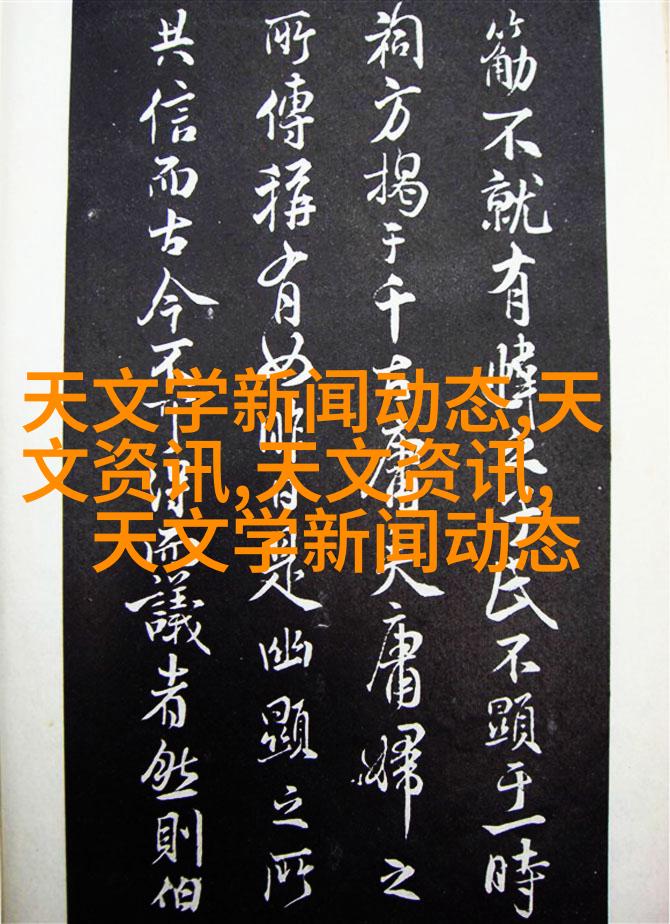 不就有氏不顯于一時
祠方揭于千古庸夫庸婦之
所傳稱有如昨是幽顯之所
共信而古今不可得而議者然則伯
天文学新闻动态,天
文资讯,天文资讯,
天文学新闻动态